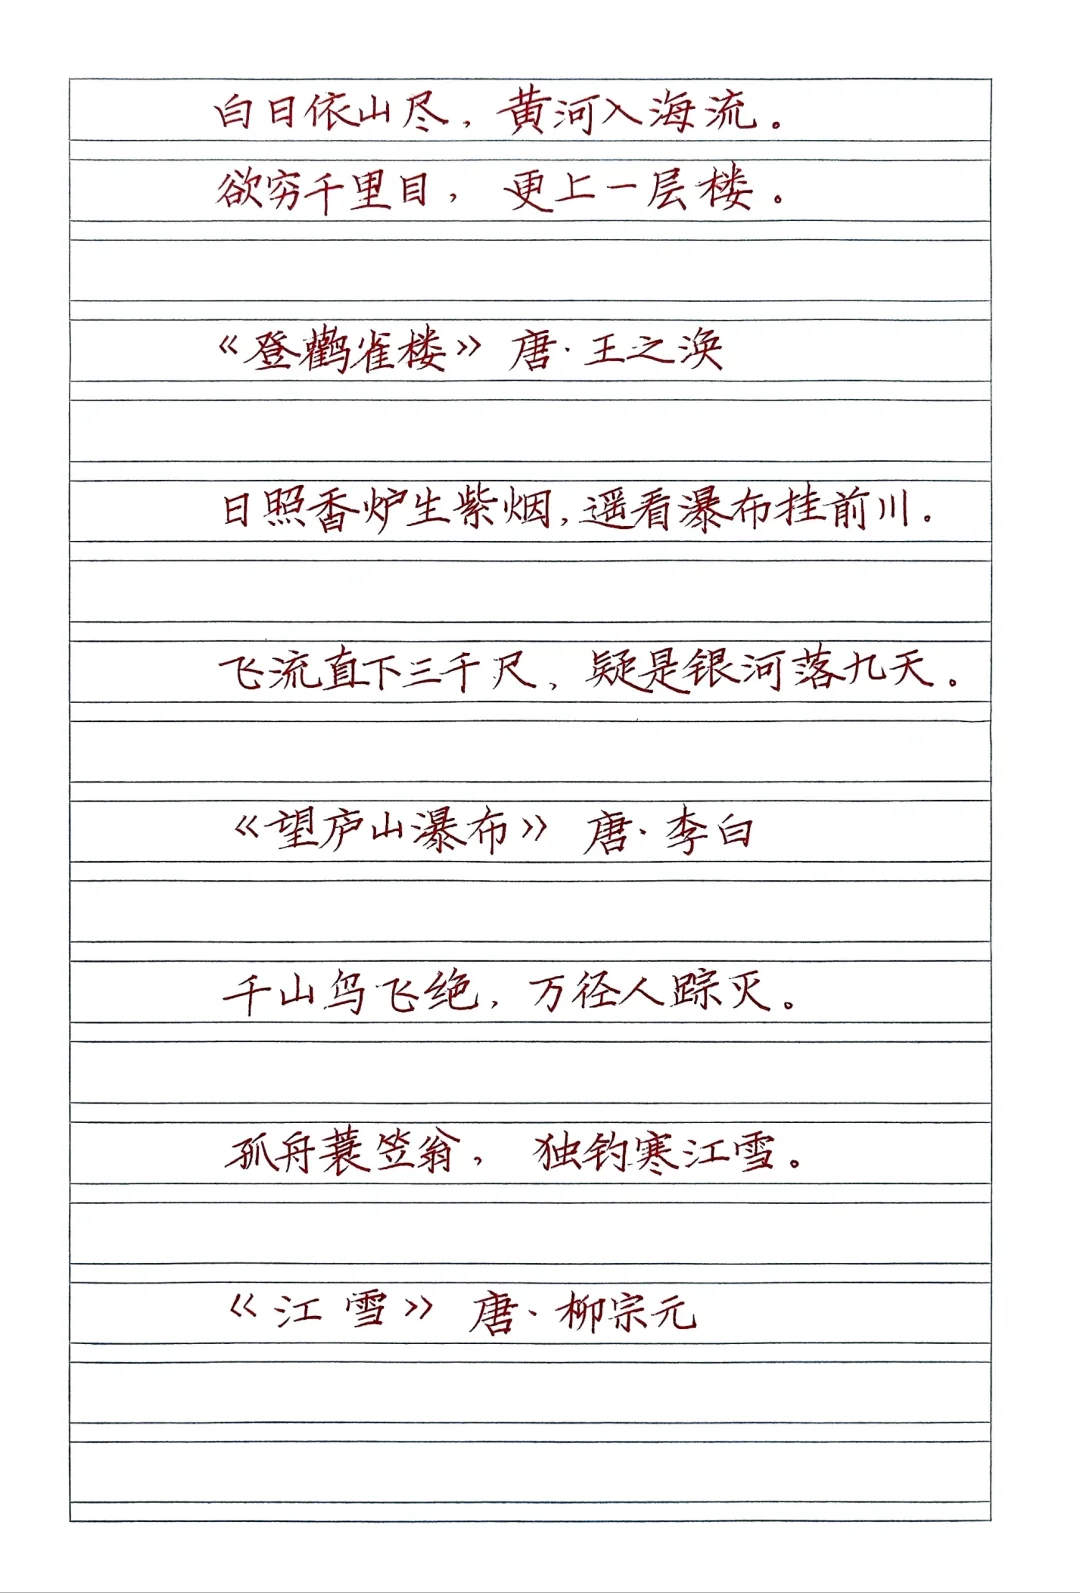 白日依山尽，黄河入海流。
欲穷千里目，更上一层楼。
《登鹳雀楼》唐·王之涣
日照香炉生紫烟，遥看瀑布挂前川。
飞流直下三千尺，疑是银河落九天。
《望庐山瀑布》唐·李白
千山鸟飞绝，万径人踪灭。
孤舟蓑笠翁，独钓寒江雪。
《江雪》唐·柳宗元